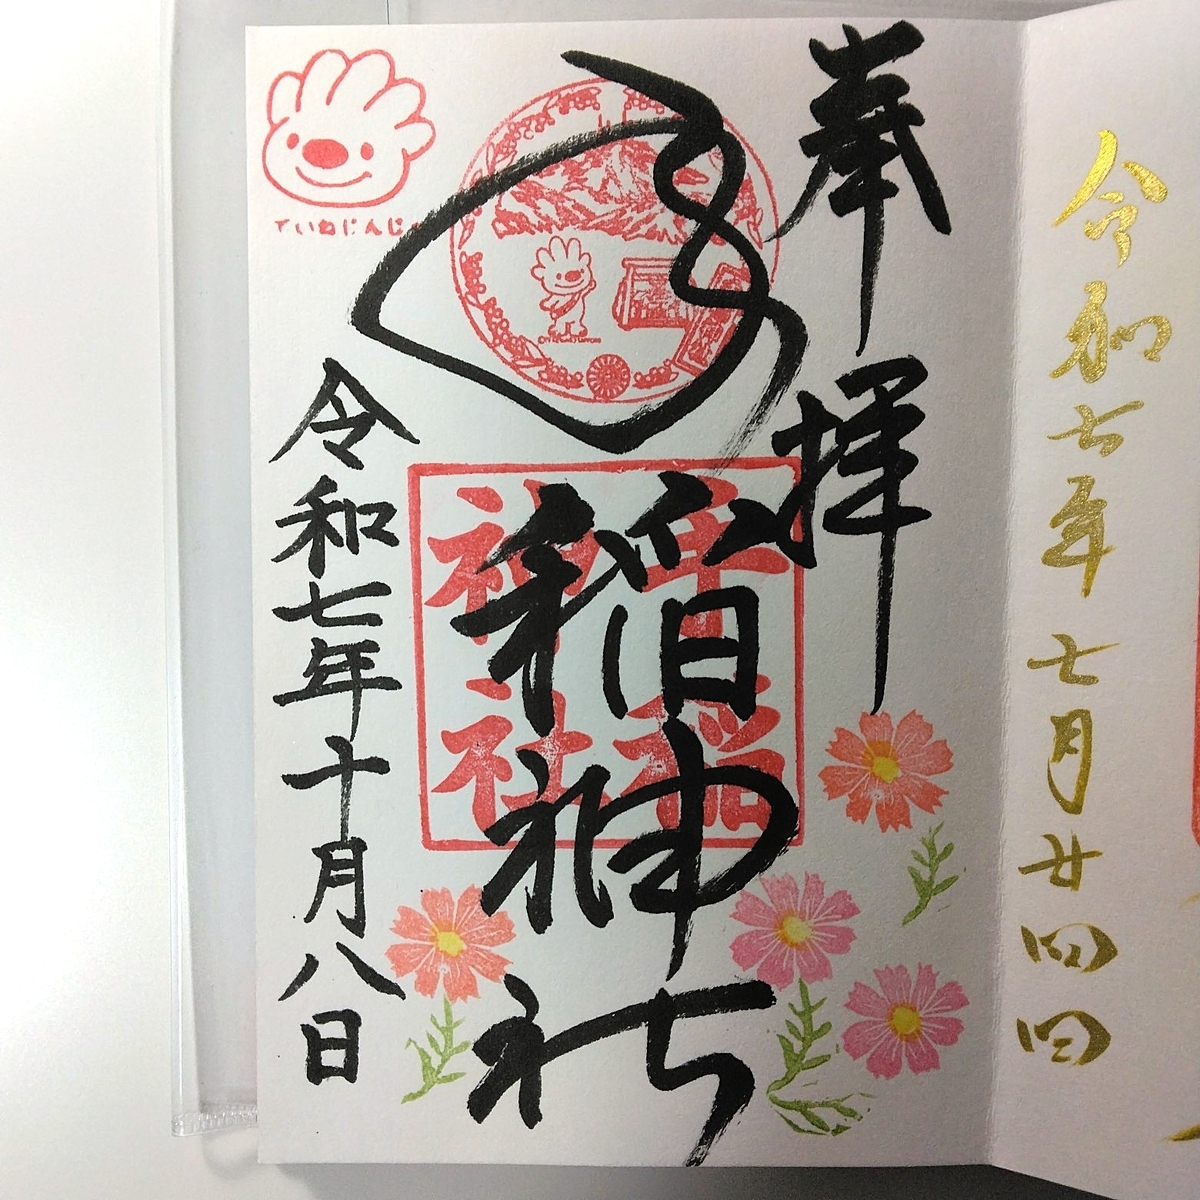 令和七年七月廿四日
奉拝
手稲神社
手稲
神社
ていねじんじゃ
令和七年十月八日